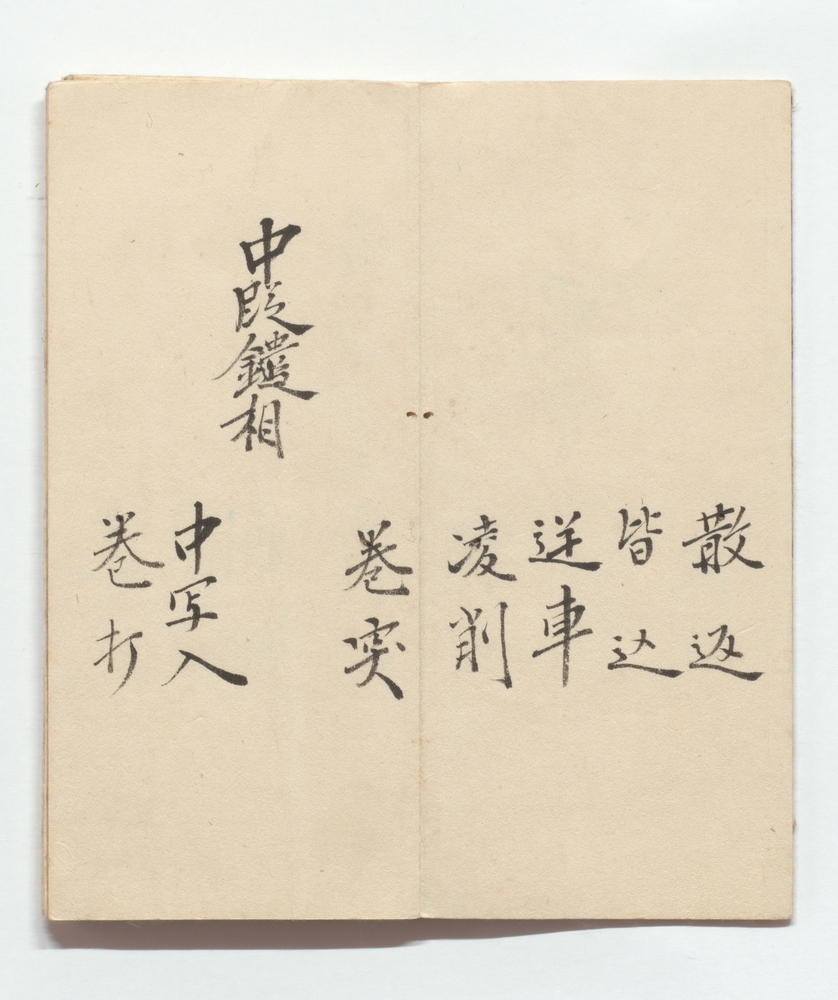 散返
皆込
逆車
凌削
巻突
中段鑓相
中写入
巻打